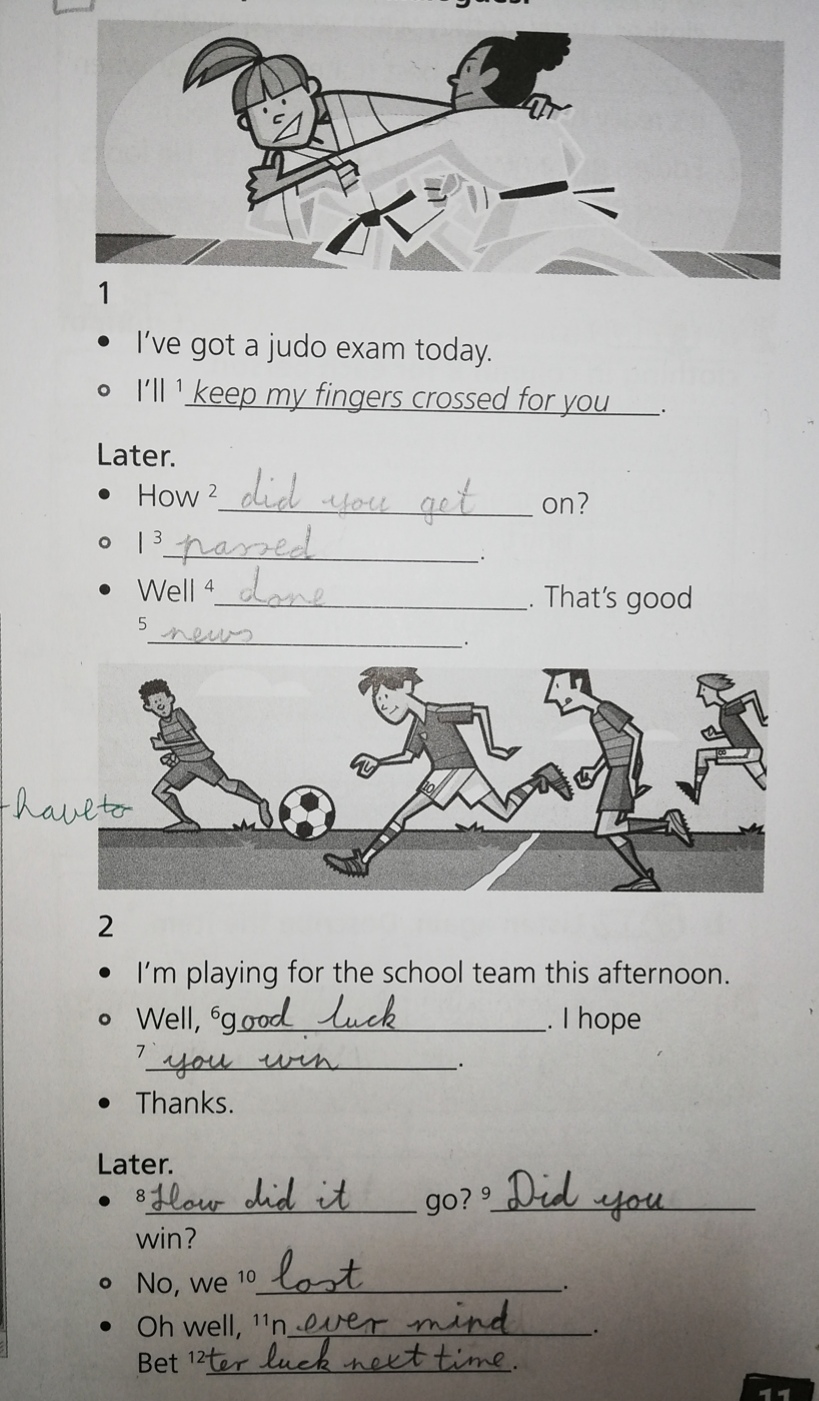 1
• I've got a judo exam today.
○ I'll ¹ keep my fingers crossed for you.
Later.
• How ² did you get on?
○ I ³ passed.
• Well ⁴ done. That's good
⁵ news.
have to
10
8
2
• I'm playing for the school team this afternoon.
○ Well, ⁶good luck. I hope
⁷ you win.
• Thanks.
Later.
• ⁸How did it go? ⁹ Did you
win?
○ No, we ¹⁰ lost.
• Oh well, ¹¹never mind.
Bet ¹²ter luck next time.
11